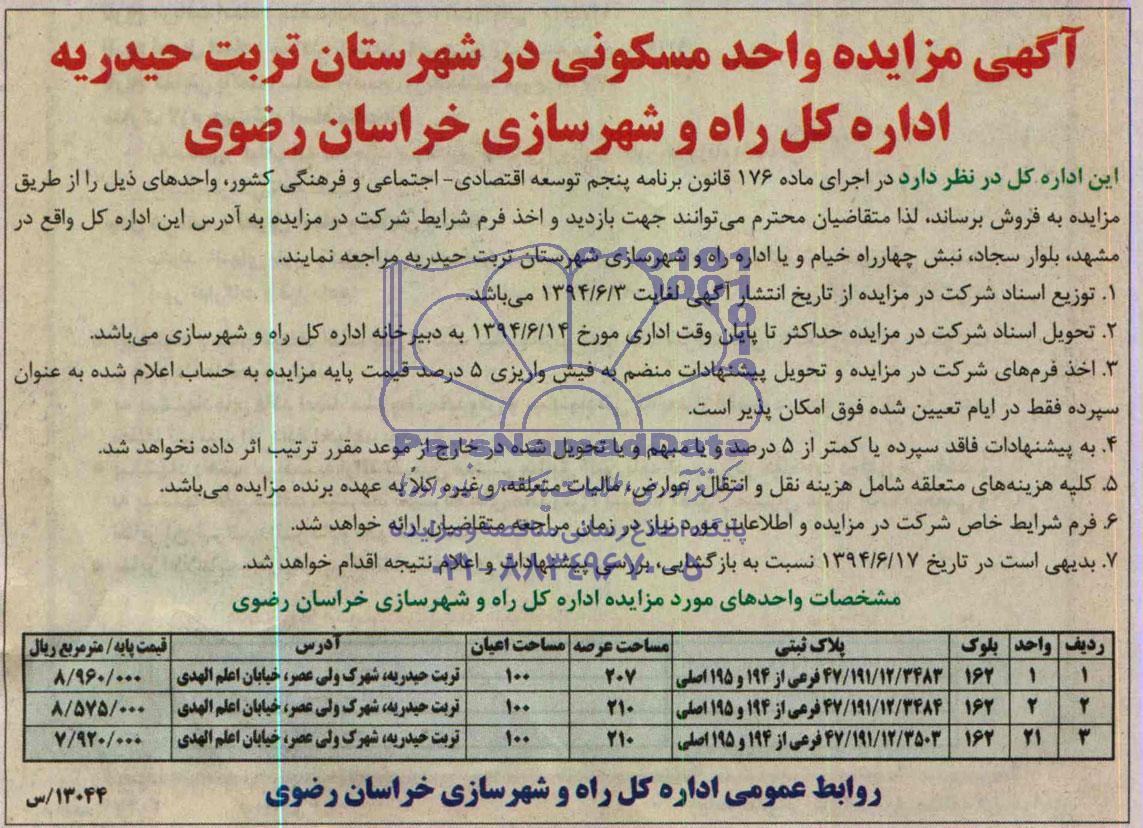 آگهی مزایده واحد مسکونی در شهرستان تربت حیدریه
اداره کل راه و شهرسازی خراسان رضوی
این اداره کل در نظر دارد در اجرای ماده ۱۷۶ قانون برنامه پنجم توسعه اقتصادی- اجتماعی و فرهنگی کشور، واحدهای ذیل را از طریق
مزایده به فروش برساند، لذا متقاضیان محترم می‌توانند جهت بازدید و اخذ فرم شرایط شرکت در مزایده به آدرس این اداره کل واقع در
مشهد، بلوار سجاد، نبش چهارراه خیام و یا اداره راه و شهرسازی شهرستان تربت حیدریه مراجعه نمایند.
۱. توزیع اسناد شرکت در مزایده از تاریخ انتشار آگهی لغایت ۱۳۹۴/۶/۳ می‌باشد.
۲. تحویل اسناد شرکت در مزایده حداکثر تا پایان وقت اداری مورخ ۱۳۹۴/۶/۱۴ به دبیرخانه اداره کل راه و شهرسازی می‌باشد.
۳. اخذ فرم‌های شرکت در مزایده و تحویل پیشنهادات منضم به فیش واریزی ۵ درصد قیمت پایه مزایده به حساب اعلام شده به عنوان
سپرده فقط در ایام تعیین شده فوق امکان پذیر است.
ParsNamadData
۴. به پیشنهادات فاقد سپرده یا کمتر از ۵ درصد و یا مبهم و یا تحویل شده در خارج از موعد مقرر ترتیب اثر داده نخواهد شد.
۵. کلیه هزینه‌های متعلقه شامل هزینه نقل و انتقال، عوارض، مالیات متعلقه، و غیره کلاً به عهده برنده مزایده می‌باشد.
۶. فرم شرایط خاص شرکت در مزایده و اطلاعات مورد نیاز در زمان مراجعه متقاضیان ارائه خواهد شد.
پایگاه اطلاع رسانی مناقصه و مزایده
۷. بدیهی است در تاریخ ۱۳۹۴/۶/۱۷ نسبت به بازگشایی، بررسی پیشنهادات و اعلام نتیجه اقدام خواهد شد.
۰۲۱-۸۸۳۴۹۶۷۰-۵
مشخصات واحدهای مورد مزایده اداره کل راه و شهرسازی خراسان رضوی
ردیف واحد بلوک پلاک ثبتی مساحت عرصه مساحت اعیان آدرس قیمت پایه/ مترمربع ریال
۱ ۱ ۱۶۲ ۴۷/۱۹۱/۱۲/۳۴۸۳ فرعی از ۱۹۴ و ۱۹۵ اصلی ۲۰۷ ۱۰۰ تربت حیدریه، شهرک ولی عصر، خیابان اعلم الهدی ۸/۹۶۰/۰۰۰
۲ ۲ ۱۶۲ ۴۷/۱۹۱/۱۲/۳۴۸۴ فرعی از ۱۹۴ و ۱۹۵ اصلی ۲۱۰ ۱۰۰ تربت حیدریه، شهرک ولی عصر، خیابان اعلم الهدی ۸/۵۷۵/۰۰۰
۳ ۲۱ ۱۶۲ ۴۷/۱۹۱/۱۲/۳۵۰۳ فرعی از ۱۹۴ و ۱۹۵ اصلی ۲۱۰ ۱۰۰ تربت حیدریه، شهرک ولی عصر، خیابان اعلم الهدی ۷/۹۲۰/۰۰۰
روابط عمومی اداره کل راه و شهرسازی خراسان رضوی
۱۳۰۴۴/س